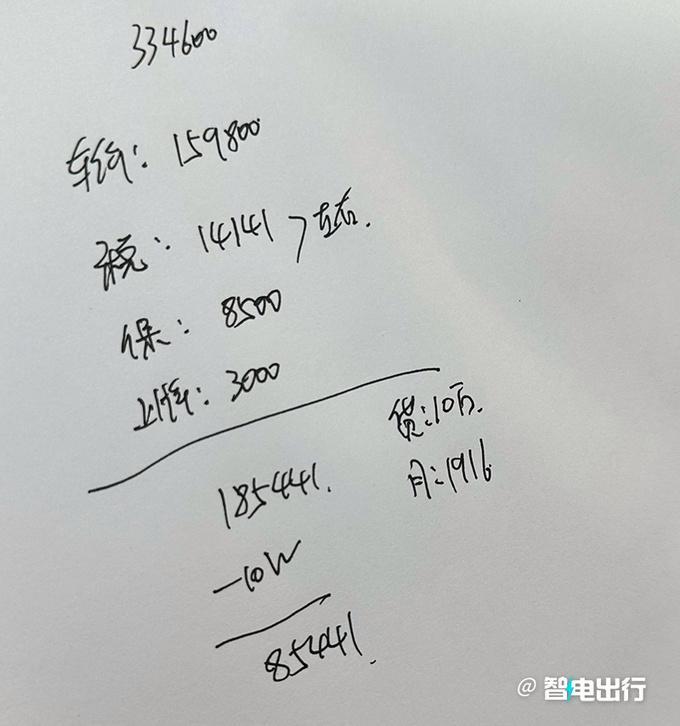 334600
车价：159800
税：14141 > 左右.
保：8500
上牌：3000
贷：10万.
月：1916
185441.
-10W
85441.
@智电出行